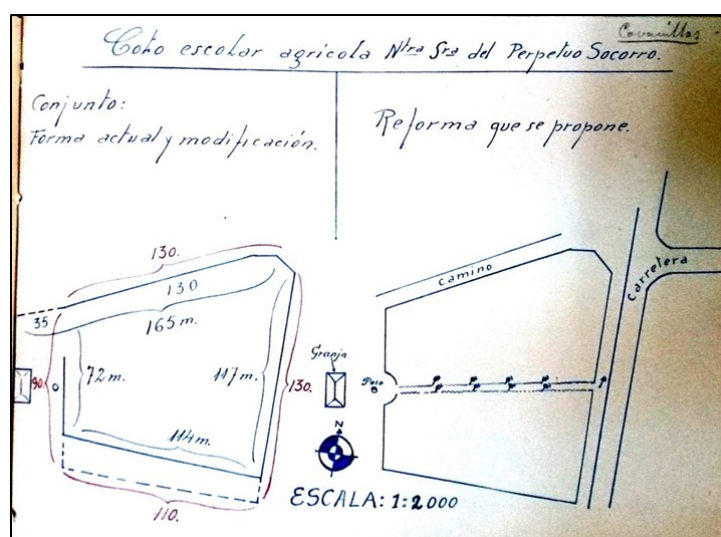 Cavanillas -
Coto escolar agrícola Ntra Sra del Perpetuo Socorro.
Conjunto:
Forma actual y modificación.
Reforma que se propone.
130.
130
165 m.
35
90.
72 m.
117 m.
130.
114 m.
110.
Camino
Carretera
Granja
Pozo
N
ESCALA: 1:2000